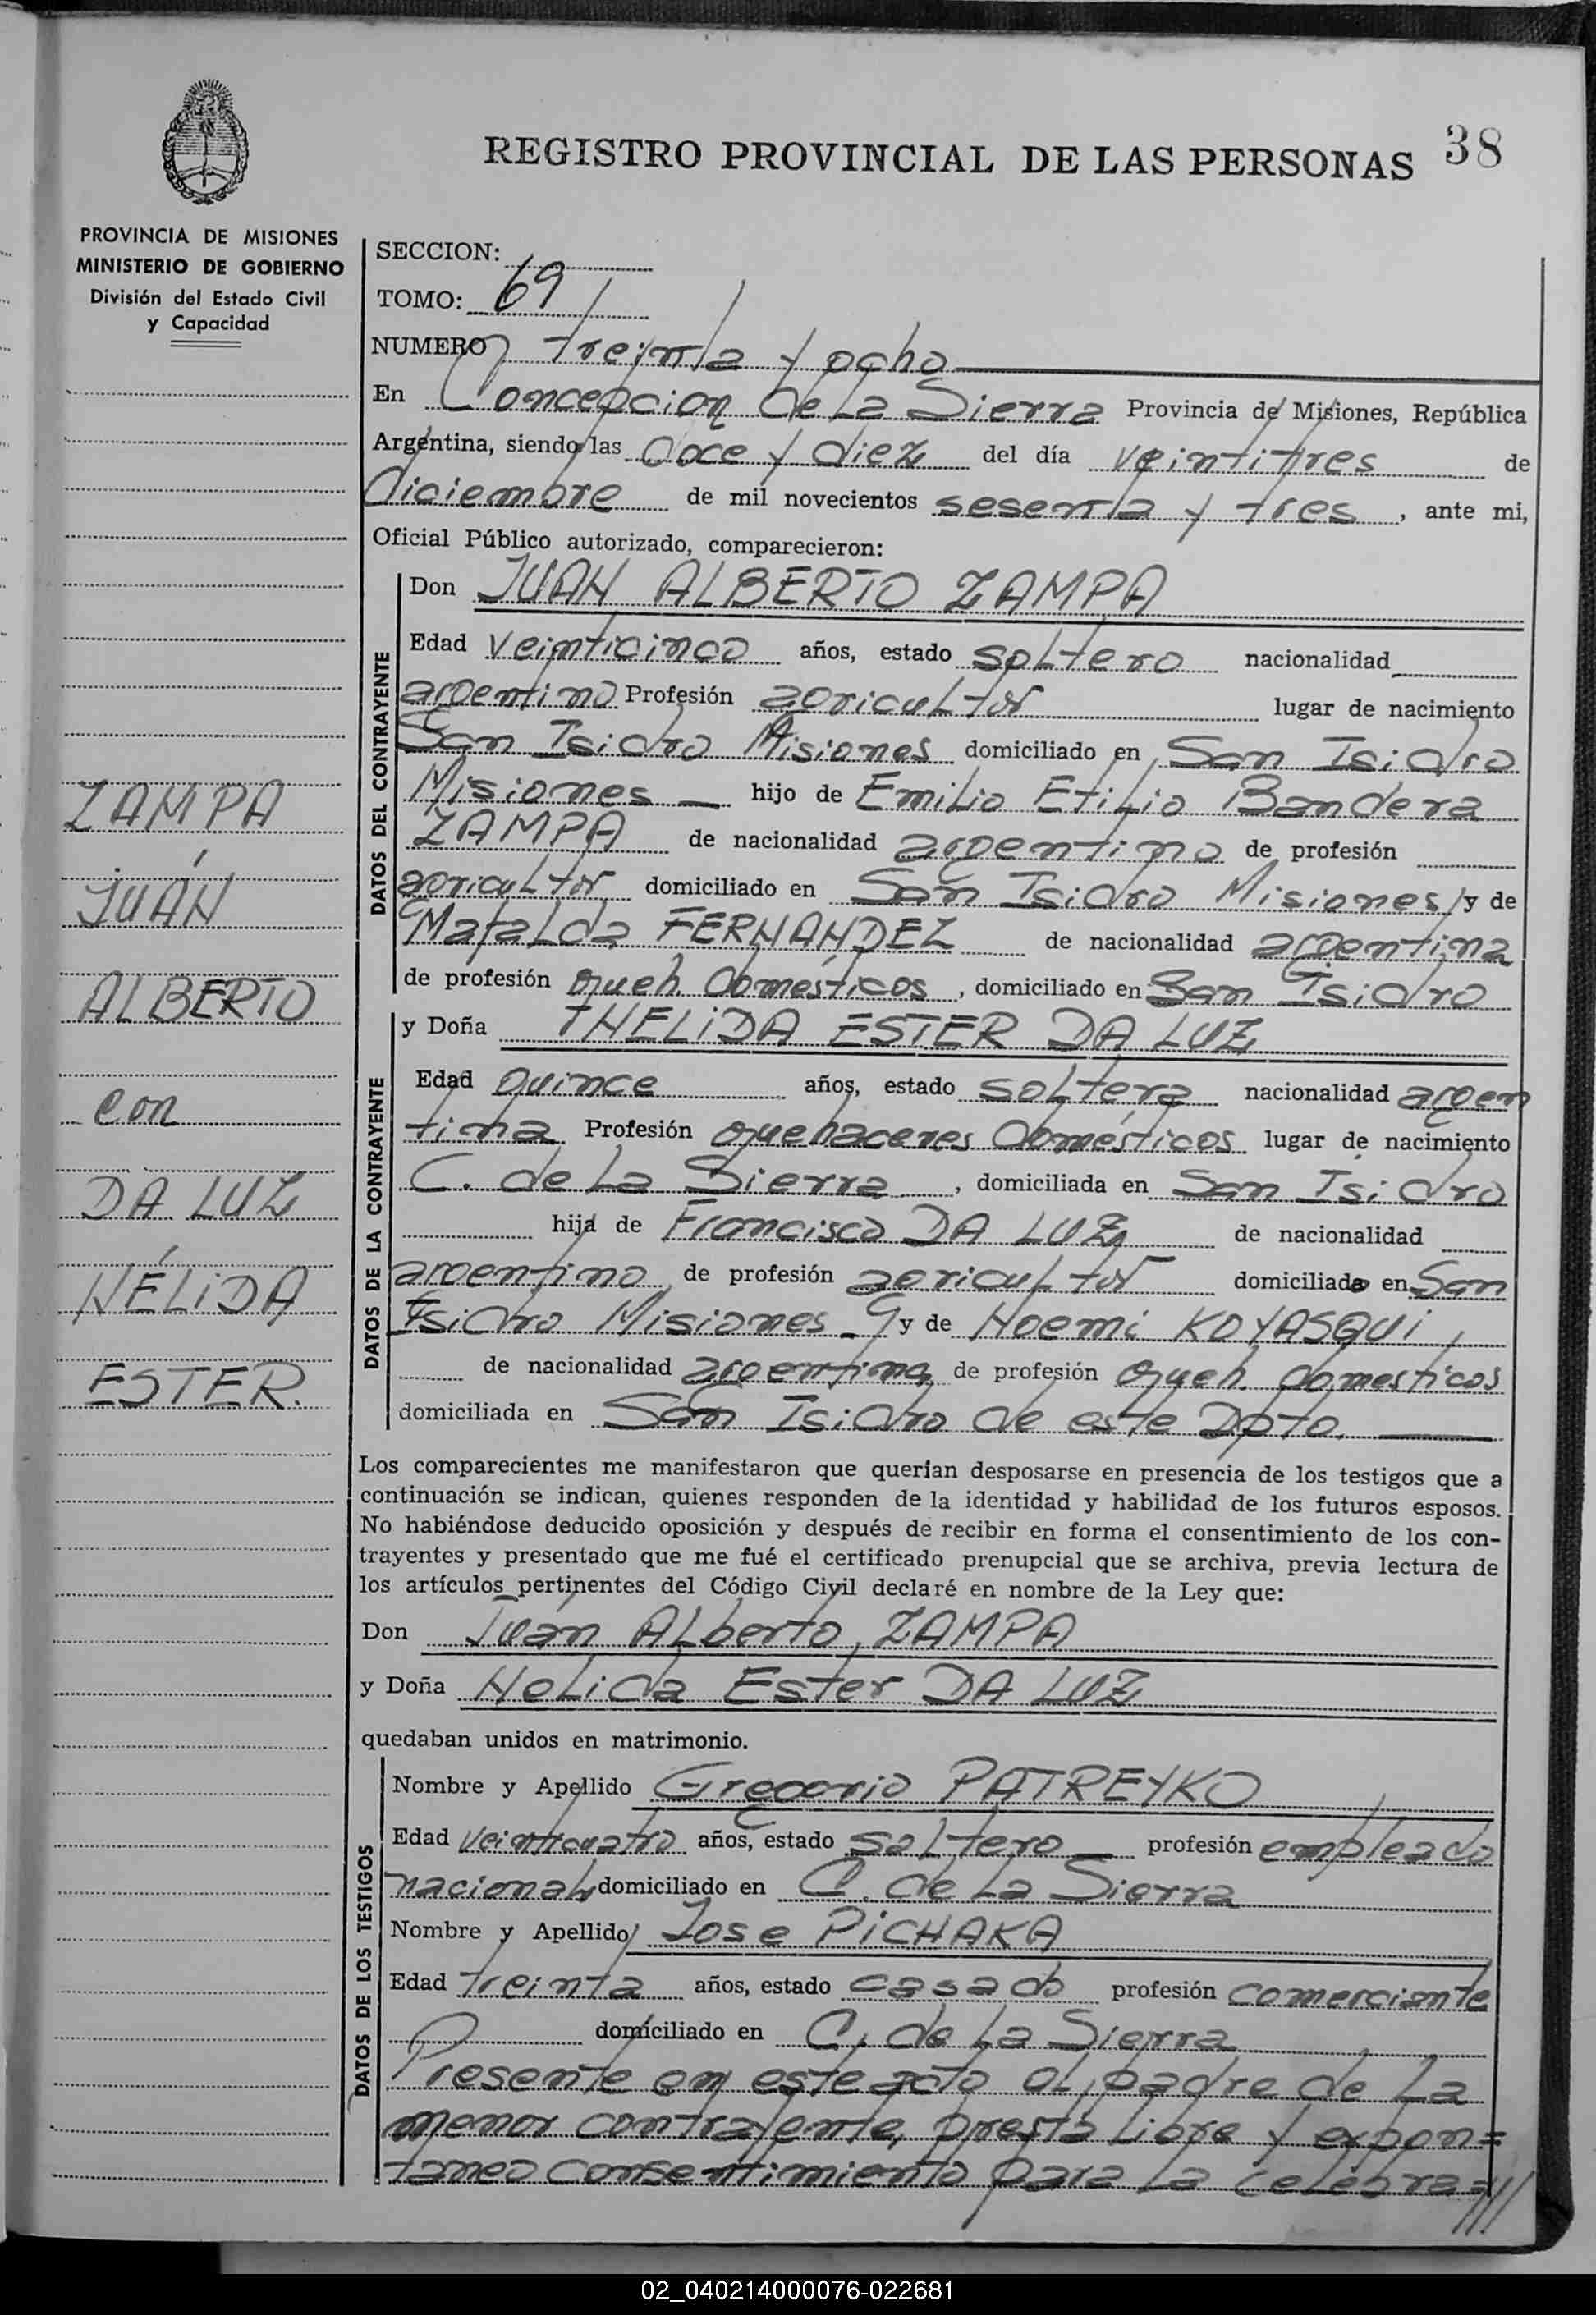 REGISTRO PROVINCIAL DE LAS PERSONAS 38
PROVINCIA DE MISIONES
MINISTERIO DE GOBIERNO
División del Estado Civil
y Capacidad
ZAMPA
JUÁN
ALBERTO
con
DA LUZ
NÉLIDA
ESTER.
SECCION:
TOMO: 69
NUMERO treinta y ocho
En Concepcion de La Sierra Provincia de Misiones, República
Argentina, siendo las doce y diez del día veintitres de
diciembre de mil novecientos sesenta y tres, ante mi,
Oficial Público autorizado, comparecieron:
DATOS DEL CONTRAYENTE
Don JUAN ALBERTO ZAMPA
Edad veinticinco años, estado soltero nacionalidad
argentino Profesión agricultor lugar de nacimiento
San Isidro Misiones domiciliado en San Isidro
Misiones — hijo de Emilio Etilio Bandera
ZAMPA de nacionalidad argentino de profesión
agricultor domiciliado en San Isidro Misiones y de
Mafalda FERNANDEZ de nacionalidad argentina
de profesión queh. domésticos, domiciliado en San Isidro
DATOS DE LA CONTRAYENTE
y Doña NELIDA ESTER DA LUZ
Edad quince años, estado soltera nacionalidad argen
tina Profesión quehaceres domésticos lugar de nacimiento
C. de La Sierra, domiciliada en San Isidro
hija de Francisco DA LUZ de nacionalidad
argentino de profesión agricultor domiciliado en San
Isidro Misiones - y de Noemi KOYASQUI,
de nacionalidad argentina de profesión queh. domesticos
domiciliada en San Isidro de este Dpto. —
Los comparecientes me manifestaron que querían desposarse en presencia de los testigos que a
continuación se indican, quienes responden de la identidad y habilidad de los futuros esposos.
No habiéndose deducido oposición y después de recibir en forma el consentimiento de los con-
trayentes y presentado que me fué el certificado prenupcial que se archiva, previa lectura de
los artículos pertinentes del Código Civil declaré en nombre de la Ley que:
Don Juan ALberto ZAMPA
y Doña NeLida Ester DA LUZ
quedaban unidos en matrimonio.
DATOS DE LOS TESTIGOS
Nombre y Apellido Gregorio PATREYKO
Edad veinticuatro años, estado soltero — profesión empleado
nacional, domiciliado en C. de La Sierra
Nombre y Apellido Jose PICHAKA
Edad treinta años, estado casado profesión comerciante
domiciliado en C. de La Sierra
Presente en este acto el padre de La
menor contrayente, presta Libre y expon=
taneo consentimiento para La celebra=///
02_040214000076-022681